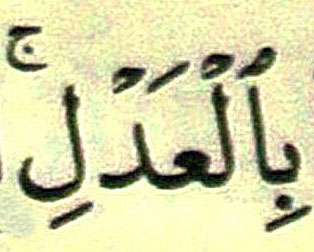 بِٱلْعَدْلِ ۚ